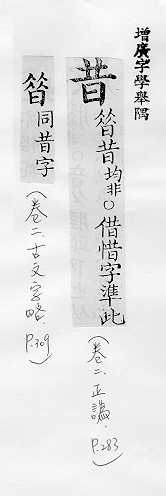 增廣字學舉隅
昔 㫺昔均非○借惜字準此
(卷二、正譌、P.283)
㫺 同昔字
(卷二、古文字略、P.309)